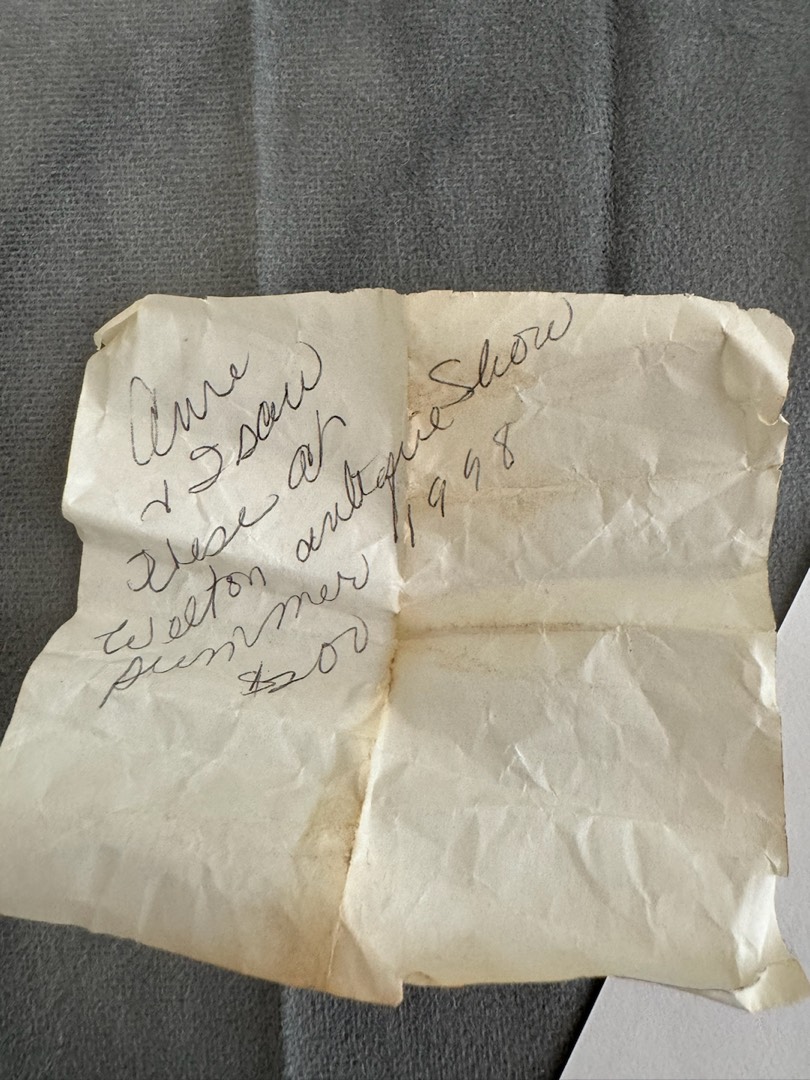 Anne
& I saw
these at
Welton antique Show
summer 1998
$200